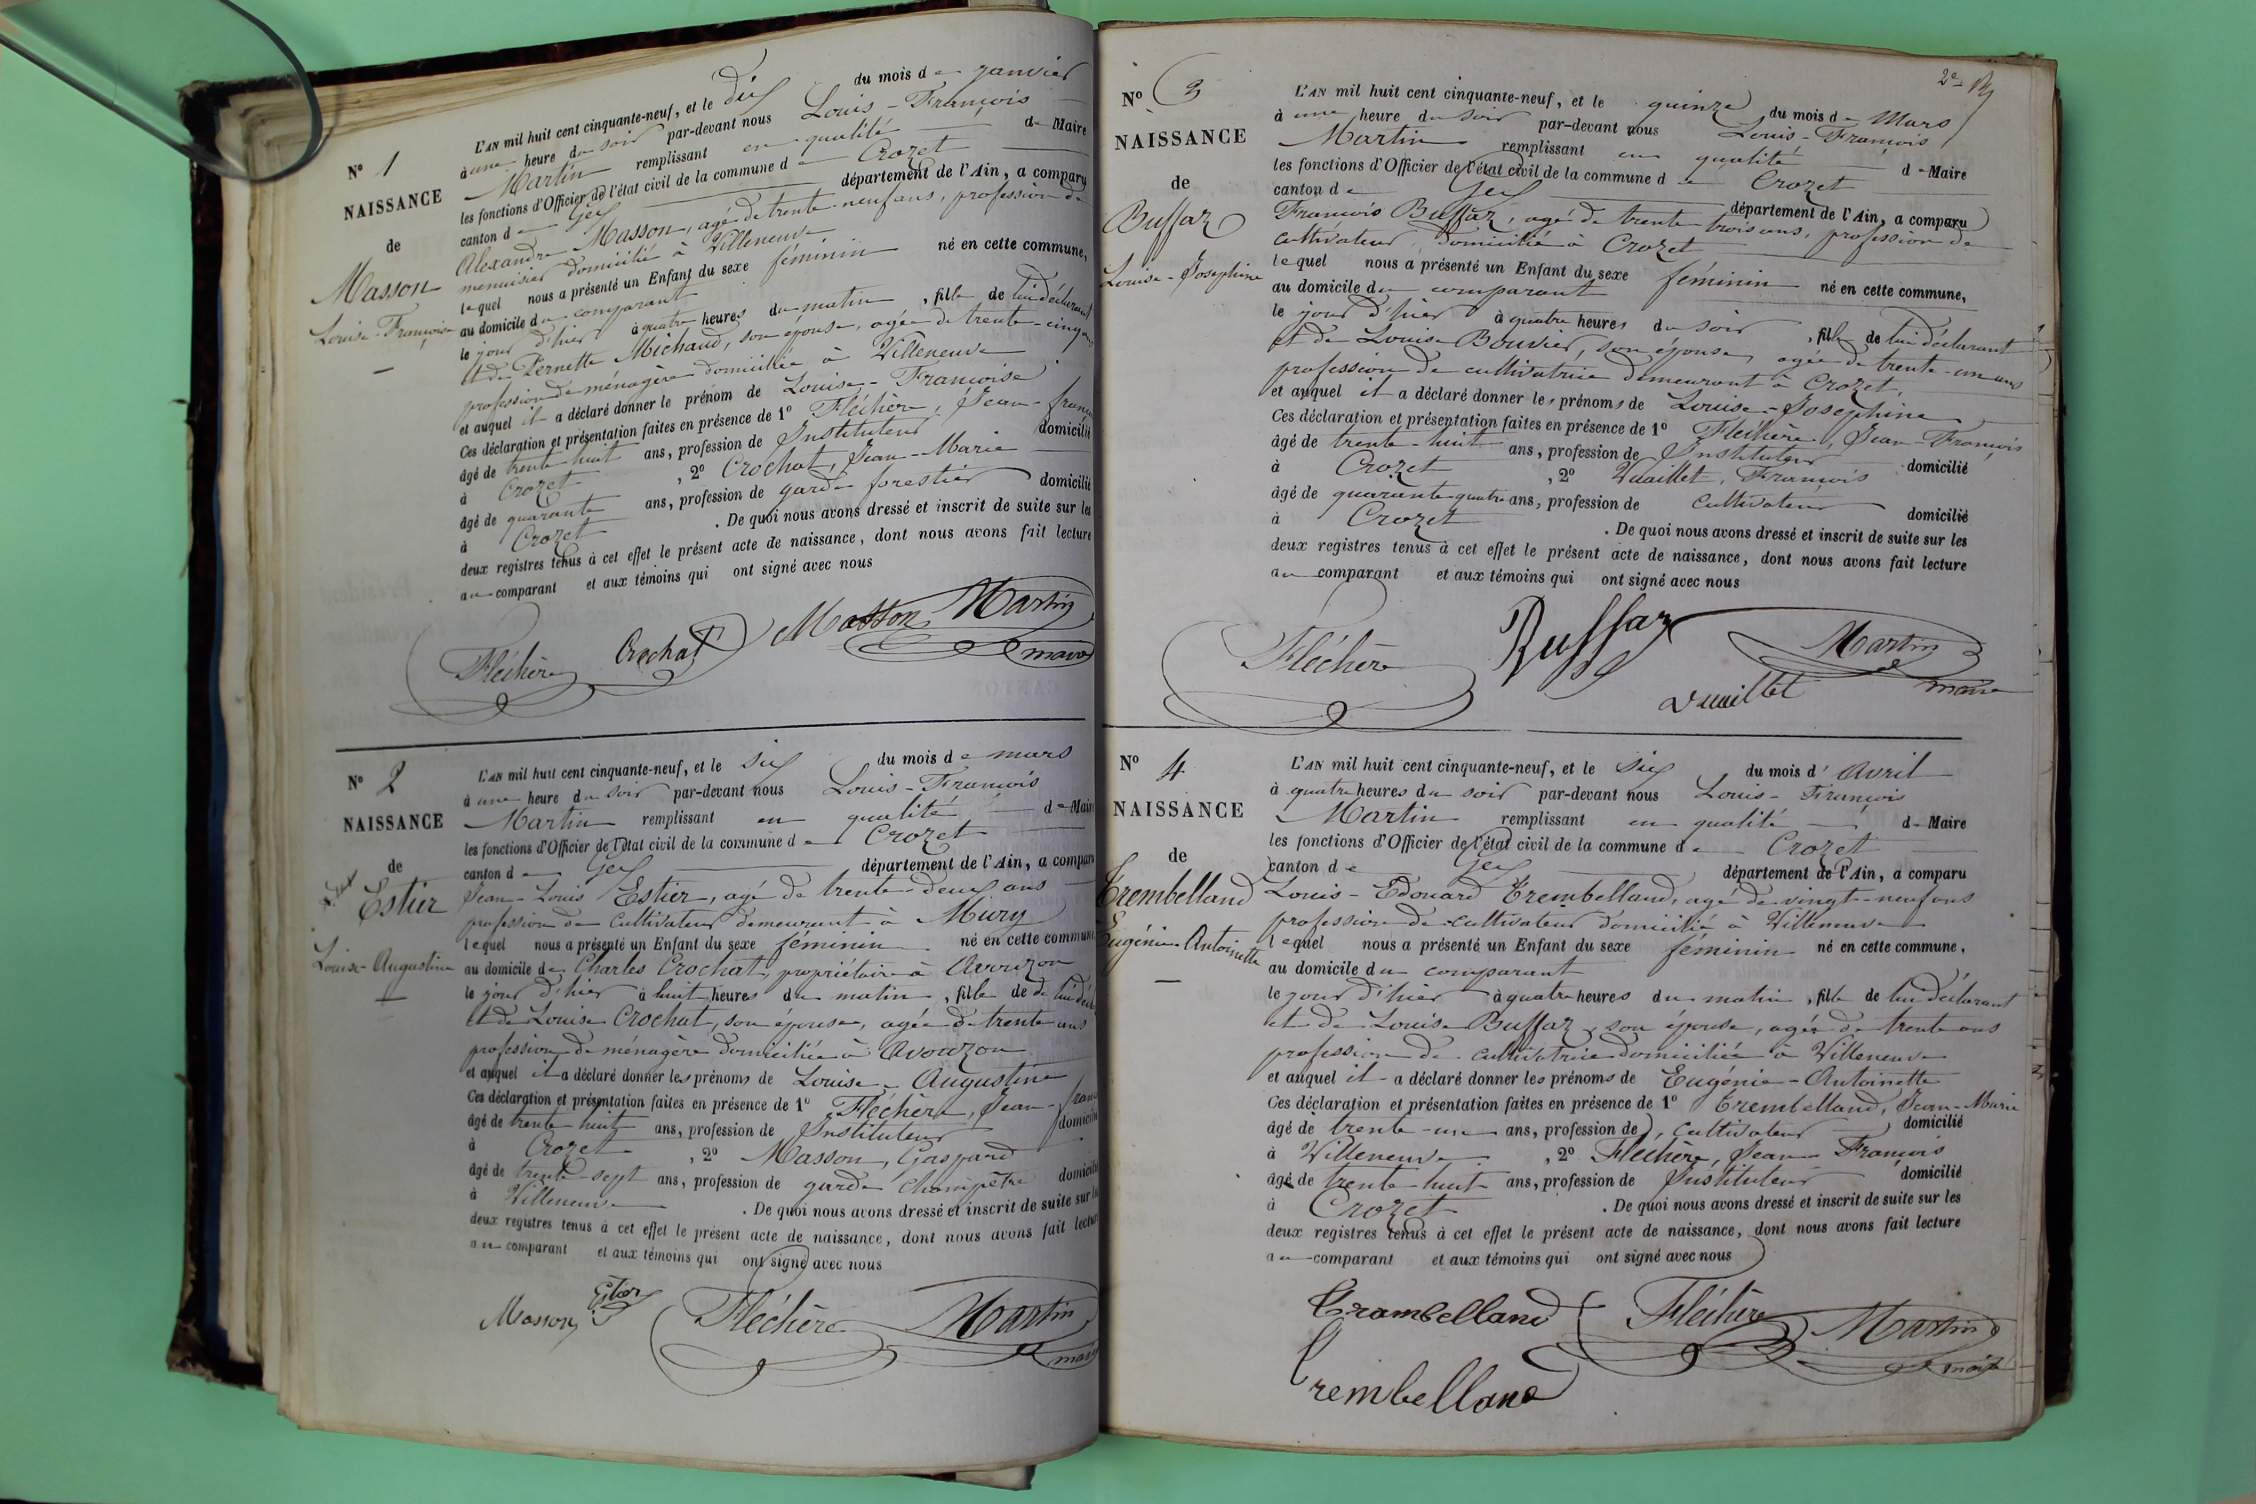 N° 1
NAISSANCE
de
Masson
Louise-Françoise
L'AN mil huit cent cinquante-neuf, et le dix du mois de janvier
à une heure du soir par-devant nous Louis-François
Martin remplissant en qualité de Maire
les fonctions d'Officier de l'état civil de la commune de Crozet
canton de Gex département de l'Ain, a comparu
Alexandre Masson, agé de trente-neuf ans, profession de
menuisier domicilié à Villeneuve
lequel nous a présenté un Enfant du sexe féminin né en cette commune,
au domicile du comparant
le jour d'hier à quatre heures du matin, fille de lui déclarant
et de Pernette Michaud, son épouse, agée de trente-cinq ans
profession de ménagère domiciliée à Villeneuve
et auquel il a déclaré donner le prénom de Louise-Françoise
Ces déclaration et présentation faites en présence de 1° Fléchère, Jean-françois
âgé de trente-huit ans, profession de Instituteur domicilié
à Crozet, 2° Crochat, Jean-Marie
âgé de quarante ans, profession de garde forestier domicilié
à Crozet. De quoi nous avons dressé et inscrit de suite sur les
deux registres tenus à cet effet le présent acte de naissance, dont nous avons fait lecture
au comparant et aux témoins qui ont signé avec nous
Fléchère Crochat Masson Martin
maire
N° 2
NAISSANCE
de
Estier
Louise-Augustine
L'AN mil huit cent cinquante-neuf, et le six du mois de mars
à une heure du soir par-devant nous Louis-François
Martin remplissant en qualité de Maire
les fonctions d'Officier de l'état civil de la commune de Crozet
canton de Gex département de l'Ain, a comparu
Jean-Louis Estier, agé de trente-deux ans
profession de cultivateur demeurant à
lequel nous a présenté un Enfant du sexe féminin né en cette commune
au domicile de Charles Crochat, propriétaire à Avouzon
le jour d'hier à huit heures du matin, fille de de lui décl
et de Louise Crochat, son épouse, agée de trente ans
profession de ménagère domiciliée à Avouzon
et auquel il a déclaré donner les prénoms de Louise-Augustine
Ces déclaration et présentation faites en présence de 1° Fléchère, Jean-franç
âgé de trente-huit ans, profession de Instituteur domicilié
à Crozet, 2° Masson, Gaspard
âgé de trente-sept ans, profession de garde champêtre domicilié
à Villeneuve. De quoi nous avons dressé et inscrit de suite sur les
deux registres tenus à cet effet le présent acte de naissance, dont nous avons fait lecture
au comparant et aux témoins qui ont signé avec nous
Masson Estier Fléchère Martin
maire
N° 3
NAISSANCE
de
Buffaz
Louise-Josephine
L'AN mil huit cent cinquante-neuf, et le quinze du mois de Mars
à une heure du soir par-devant nous Louis-François
Martin remplissant en qualité de Maire
les fonctions d'Officier de l'état civil de la commune de Crozet
canton de Gex département de l'Ain, a comparu
François Buffaz, agé de trente trois ans, profession de
cultivateur, domicilié à Crozet
lequel nous a présenté un Enfant du sexe féminin né en cette commune,
au domicile du comparant
le jour d'hier à quatre heures du soir, fille de lui déclarant
et de Louise Bouvier, son épouse, agée de trente-un ans
profession de cultivatrice demeurant à Crozet,
et auquel il a déclaré donner les prénoms de Louise-Josephine
Ces déclaration et présentation faites en présence de 1° Fléchère, Jean-François
âgé de trente-huit ans, profession de Instituteur domicilié
à Crozet, 2° Vuaillet, François
âgé de quarante-quatre ans, profession de cultivateur domicilié
à Crozet. De quoi nous avons dressé et inscrit de suite sur les
deux registres tenus à cet effet le présent acte de naissance, dont nous avons fait lecture
au comparant et aux témoins qui ont signé avec nous
Fléchère Buffaz Martin
Vuaillet maire
N° 4
NAISSANCE
de
Trembelland
Eugénie-Antoinette
L'AN mil huit cent cinquante-neuf, et le six du mois d'Avril
à quatre heures du soir par-devant nous Louis-François
Martin remplissant en qualité de Maire
les fonctions d'Officier de l'état civil de la commune de Crozet
canton de Gex département de l'Ain, a comparu
Louis-Edouard Trembelland, agé de vingt-neuf ans
profession de cultivateur domicilié à Villeneuve
lequel nous a présenté un Enfant du sexe féminin né en cette commune,
au domicile du comparant
le jour d'hier à quatre heures du matin, fille de lui déclarant
et de Louise Buffaz, son épouse, agée de trente ans
profession de cultivatrice domiciliée à Villeneuve
et auquel il a déclaré donner les prénoms de Eugénie-Antoinette
Ces déclaration et présentation faites en présence de 1° Trembelland, Jean-Marie
âgé de trente-un ans, profession de, cultivateur domicilié
à Villeneuve, 2° Fléchère, Jean François
âgé de trente-huit ans, profession de Instituteur domicilié
à Crozet. De quoi nous avons dressé et inscrit de suite sur les
deux registres tenus à cet effet le présent acte de naissance, dont nous avons fait lecture
au comparant et aux témoins qui ont signé avec nous
Trambelland Fléchère Martin
maire
Trembelland